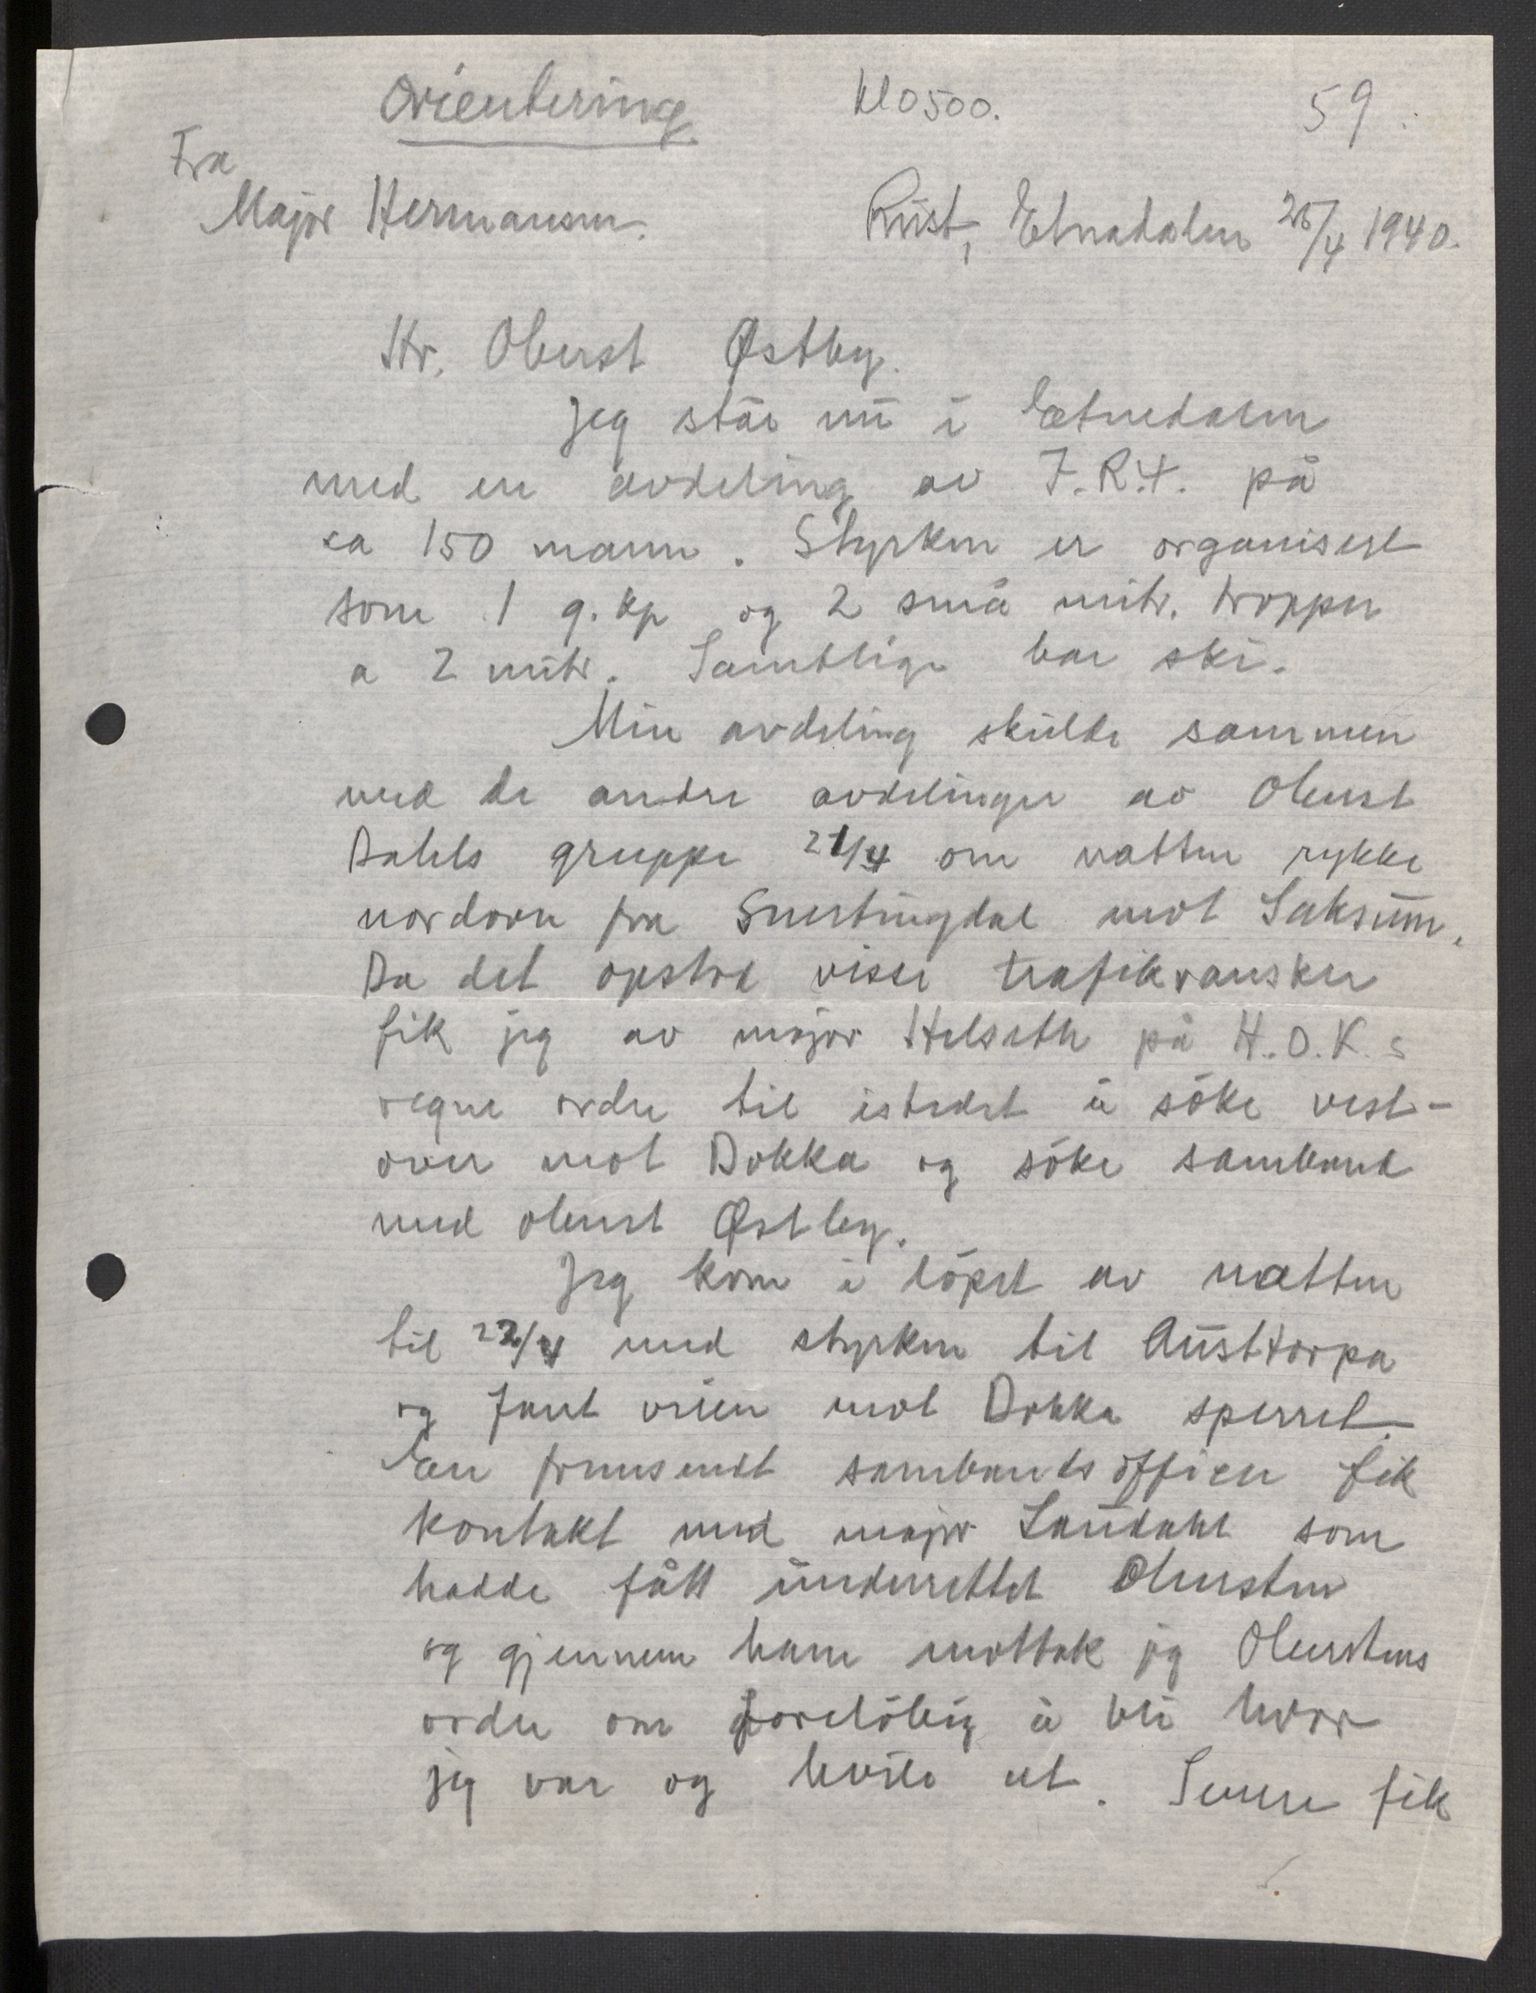 Orientering
kl 0500.
59.
Fra
Major Hermansen.
Rust, Etnadalen 25/4 1940.
Hr. Oberst Østbye.
Jeg står nu i Etnedalen
med en avdeling av I.R.4. på
ca 150 mann. Styrken er organisert
som 1 g.kp og 2 små mitr. tropper
a 2 mitr. Samtlige har ski.
Min avdeling skulde sammen
med de andre avdelinger av Oberst
Dahls gruppe 21/4 om natten rykke
nordover fra Snertingdal mot Saksum.
Da det opstod visse trafikvansker
fik jeg av major Helseth på H.O.K.s
vegne ordre til istedet å söke vest-
over mot Dokka og söke samband
med oberst Østbye.
Jeg kom i löpet av natten
til 22/4 med styrken til Austtorpa
og fant veien mot Dokka sperret.
En fremsendt sambandsofficer fik
kontakt med major Landahl som
hadde fått underrettet Obersten
og gjennem ham mottok jeg Oberstens
ordre om forelöbig å bli hvor
jeg var og hvile ut. Senere fik